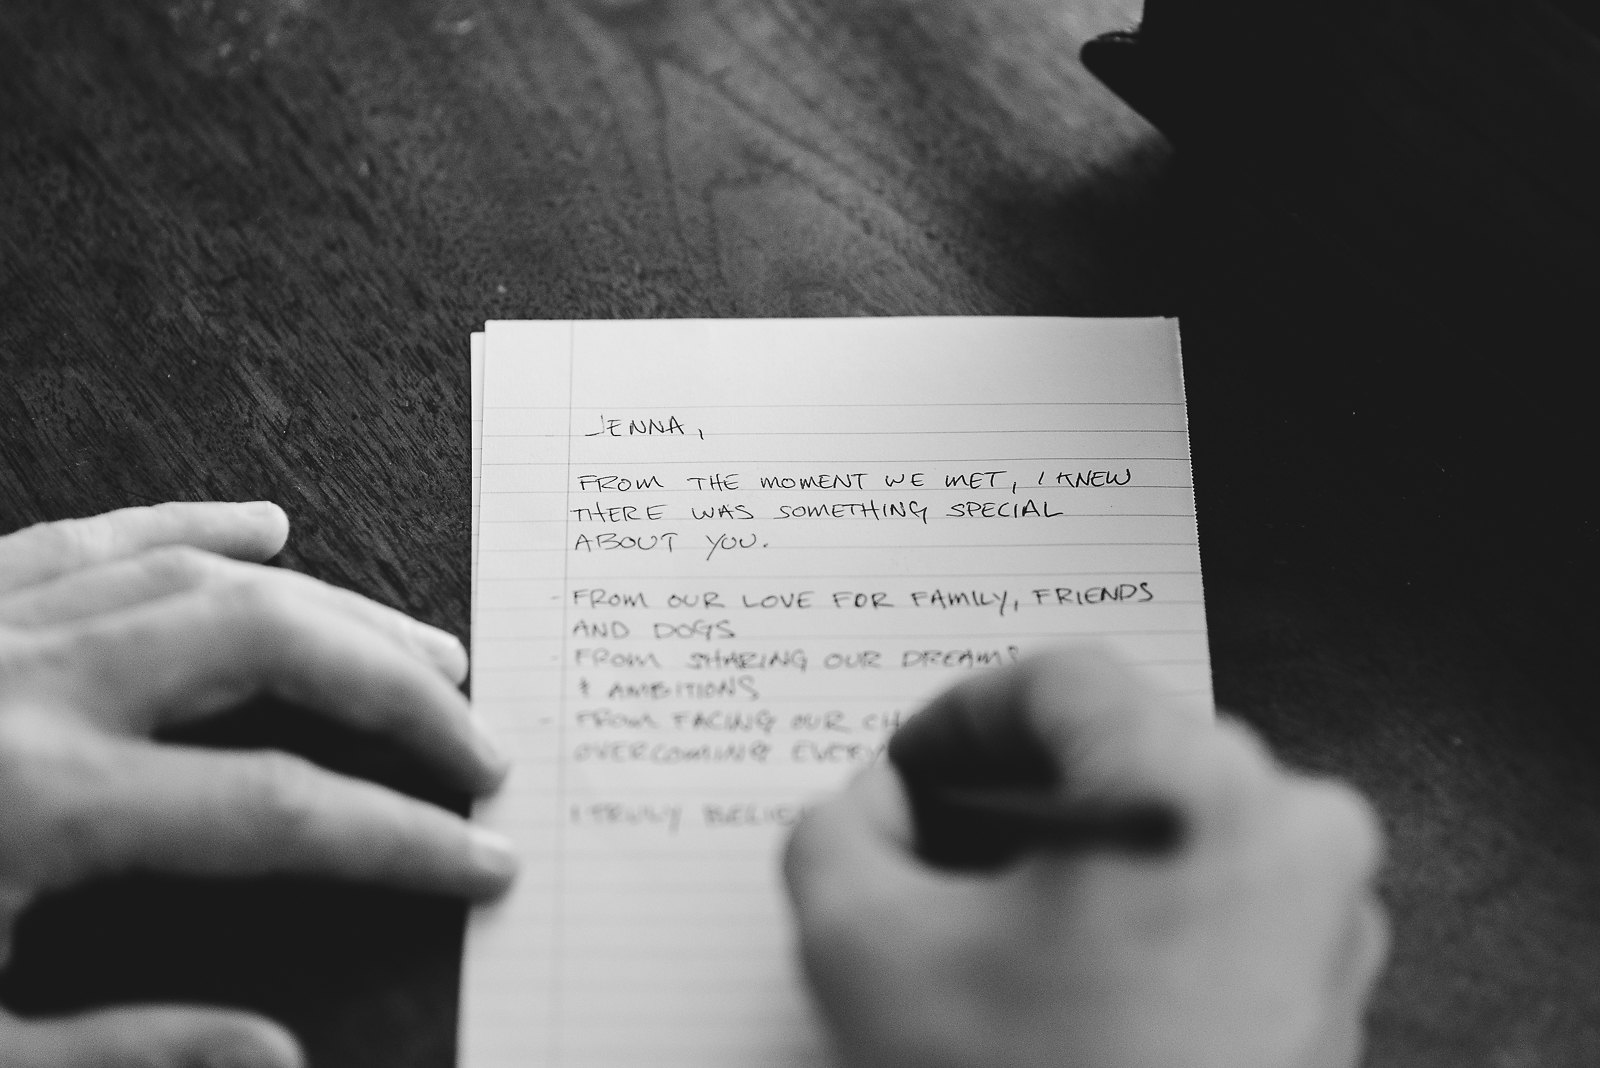 JENNA,
FROM THE MOMENT WE MET, I KNEW
THERE WAS SOMETHING SPECIAL
ABOUT YOU.
- FROM OUR LOVE FOR FAMILY, FRIENDS
AND DOGS
- FROM SHARING OUR DREAMS
& AMBITIONS
- FROM FACING OUR
OVERCOMING
I TRULY